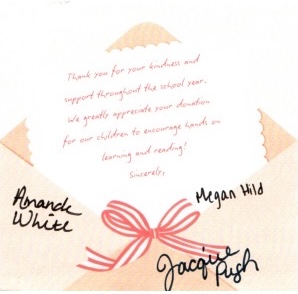 Thank you for your kindness and
support throughout the school year.
We greatly appreciate your donation
for our children to encourage hands on
learning and reading!
Sincerely,
Amanda White
Megan Hild
Jacquie Pugh